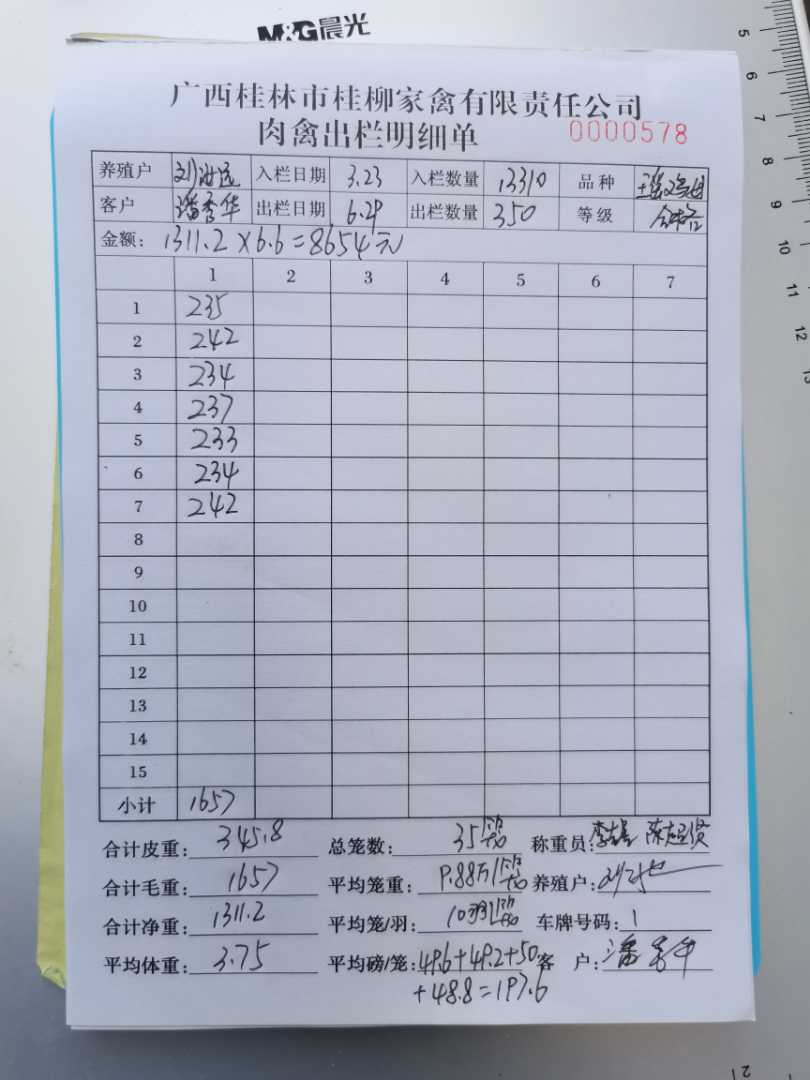 M&G晨光
广西桂林市桂柳家禽有限责任公司
肉禽出栏明细单 0000578
养殖户 入栏日期 3.23 入栏数量 13310 品种
客户 潘秀华 出栏日期 6.29 出栏数量 350 等级 合格
金额: 1311.2×6.6=8654元
1 2 3 4 5 6 7
1 235
2 242
3 234
4 237
5 233
6 234
7 242
8
9
10
11
12
13
14
15
小计 1657
合计皮重: 345.8 总笼数: 35 称重员:
合计毛重: 1657 平均笼重: 9.88斤/ 养殖户:
合计净重: 1311.2 平均笼/羽: 10羽/ 车牌号码: 1
平均体重: 3.75 平均磅/笼: 49.6+49.2+50 客 户: 潘秀华
+48.8=197.6
5
6
7
8
9
10
11
12
21